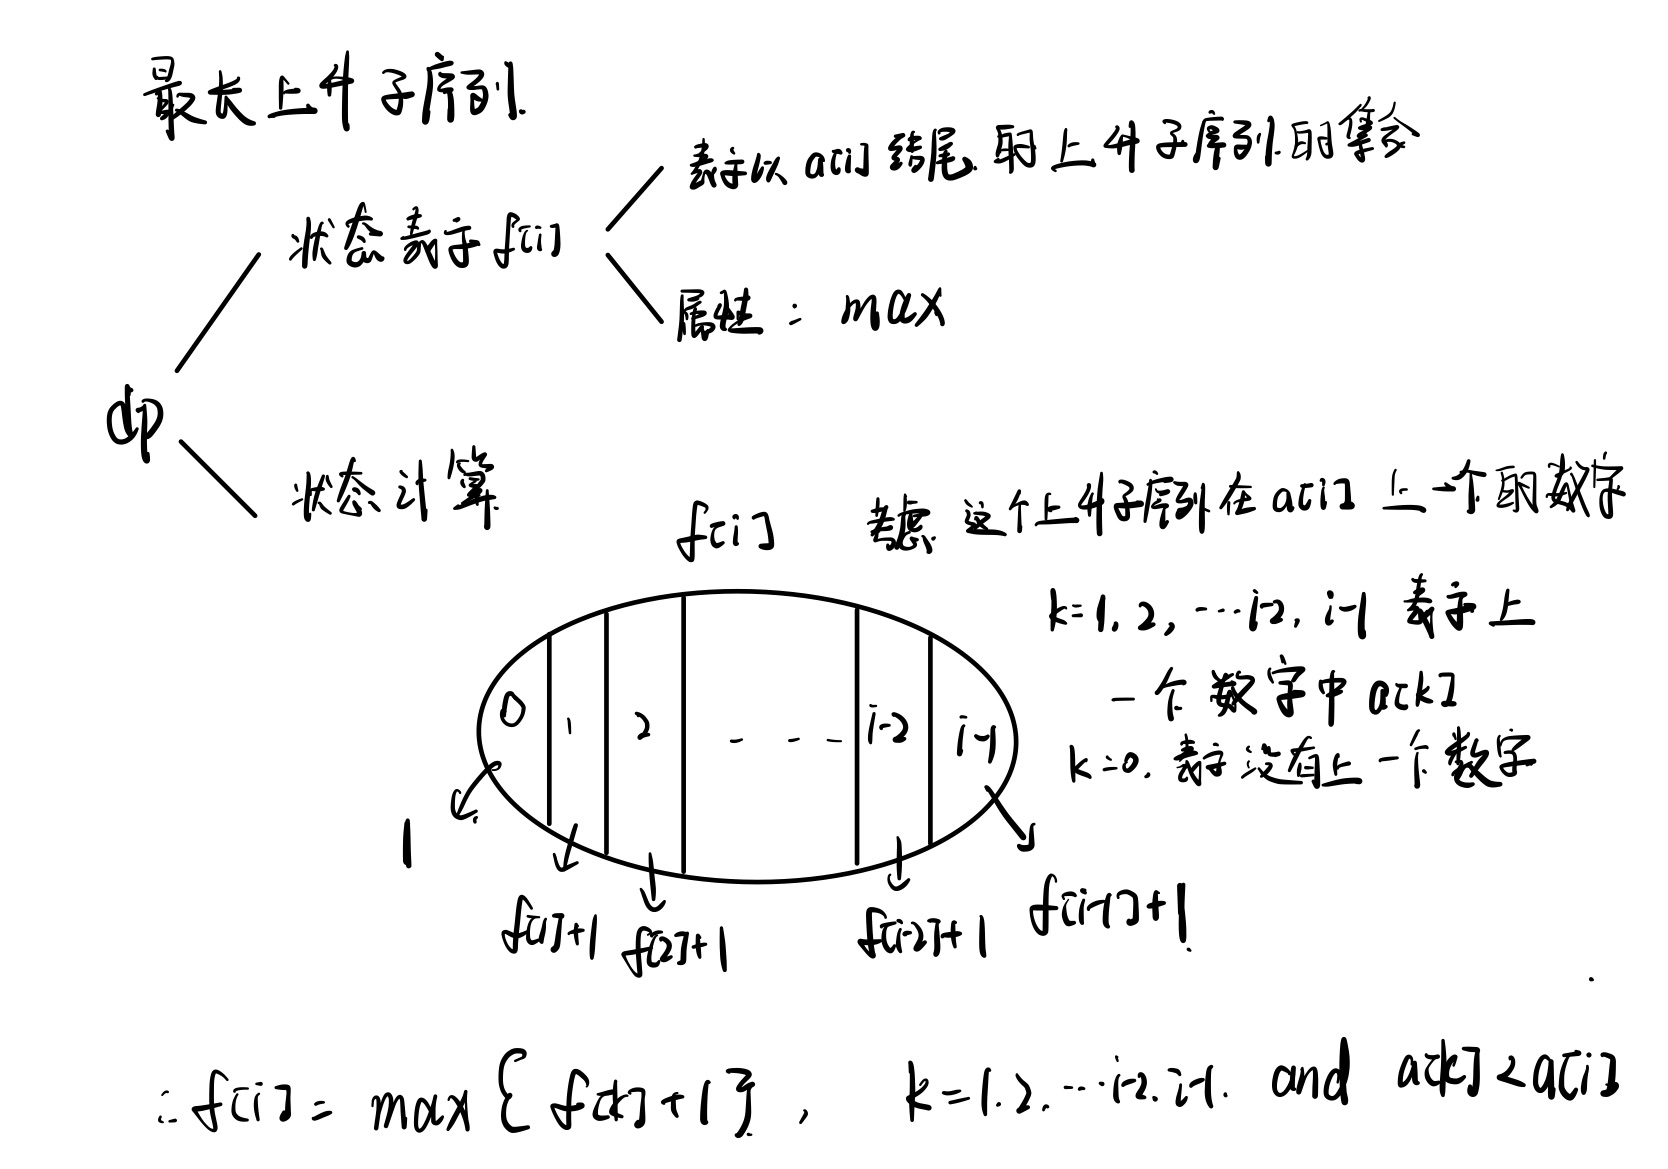 最长上升子序列
表示以 a[i] 结尾的上升子序列的集合
状态表示 f[i]
属性：max
dp
状态计算
f[i] 考虑这个上升子序列在 a[i] 上一个的数字
k=1, 2, ...i-2, i-1 表示上
一个数字中 a[k]
k=0. 表示没有上一个数字
0 1 2 - - - i-2 i-1
1
f[1]+1 f[2]+1 f[i-2]+1 f[i-1]+1
∴ f[i] = max { f[k]+1 } , k=1.2. ...i-2. i-1. and a[k]<a[i]